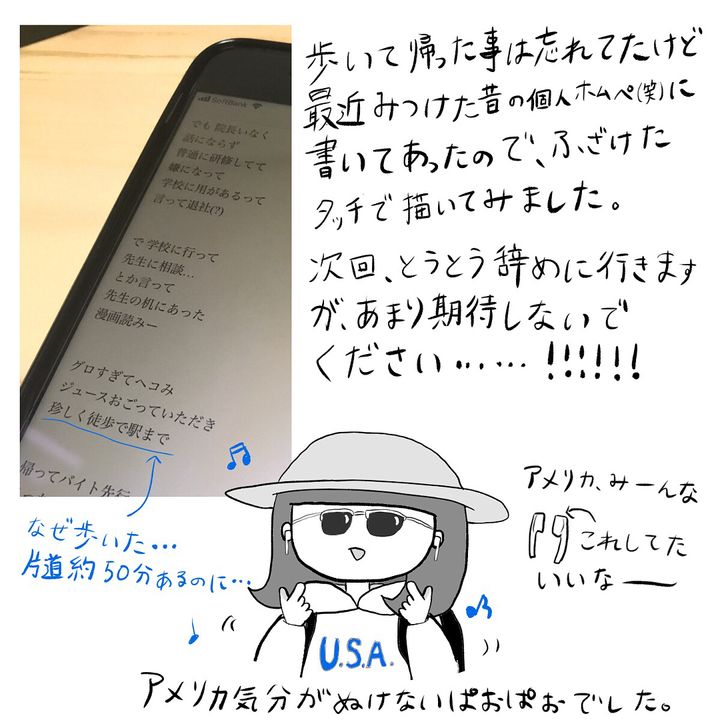 歩いて帰った事は忘れてたけど
最近みつけた昔の個人ホムペ(笑)に
書いてあったので、ふざけた
タッチで描いてみました。
次回、とうとう辞めに行きます
が、あまり期待しないで
ください……!!!!!!
SoftBank
でも 院長いなく
話にならず
普通に研修してて
嫌になって
学校に用があるって
言って退社(?)
で 学校に行って
先生に相談…
とか言って
先生の机にあった
漫画読みー
グロすぎてヘコみ
ジュースおごっていただき
珍しく徒歩で駅まで
帰ってバイト先行
なぜ歩いた…
片道約50分あるのに…
アメリカ、みーんな
これしてた
いいなー
U.S.A.
アメリカ気分がぬけないぱおぱおでした。